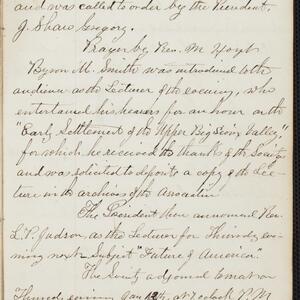 and was called to order by the President,
J. Shaw Gregory.
Prayer by Rev. M. Hoyt
Byron M. Smith was introduced to the
audience as the Lecturer of the evening, who
entertained his hearers for an hour on the
"Early Settlement of the Upper Big Sioux Valley,"
for which he received the thanks of the Society
and was solicited to deposit a copy of the Lec-
ture in the archives of the Association
The President then announced Rev.
L. P. Judson as the Lecturer for Thursday eve-
ning next - Subject "Future of America."
The Society adjourned to meet on
Thursday evening Jan at 7 o'clock P.M.